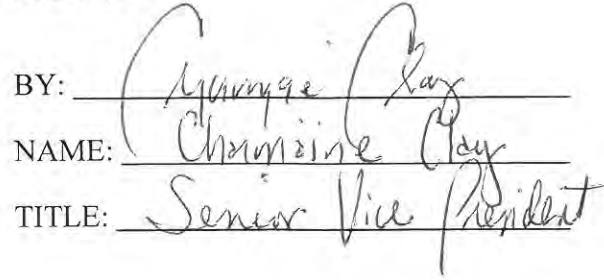 BY: Charmaine Clay
NAME: Charmaine Clay
TITLE: Senior Vice President